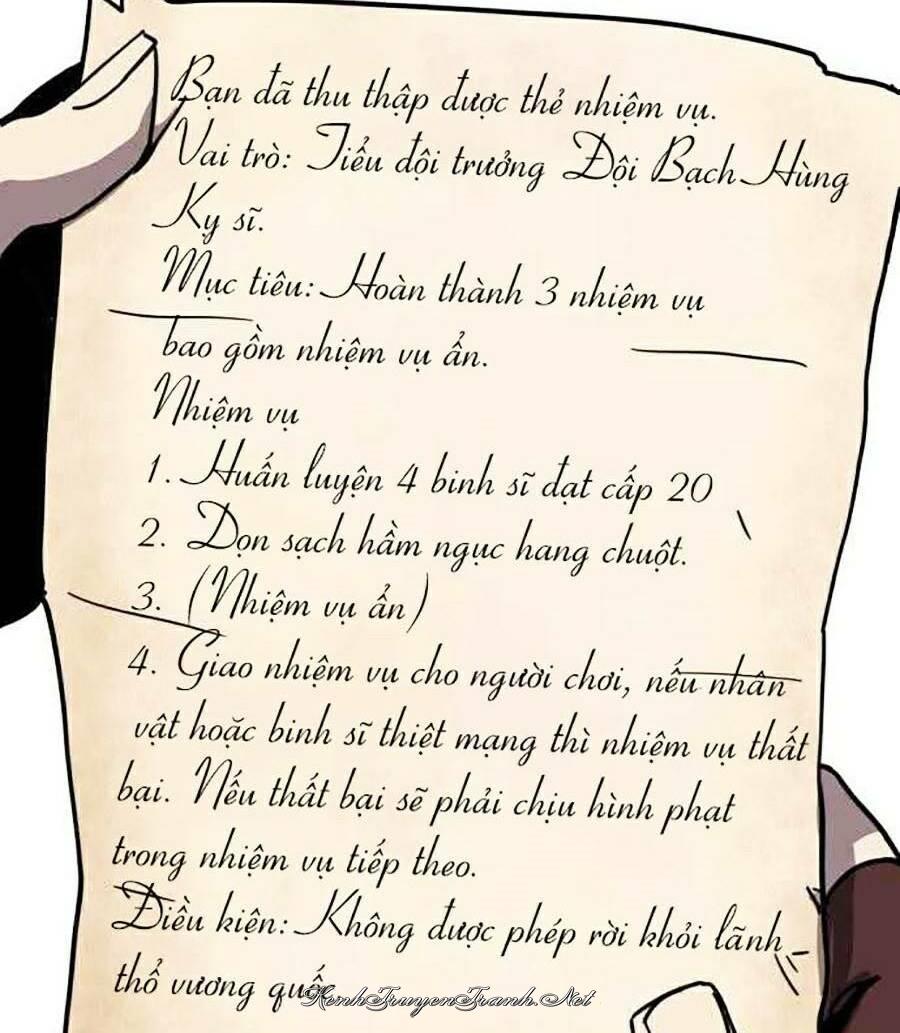 Bạn đã thu thập được thẻ nhiệm vụ.
Vai trò: Tiểu đội trưởng Đội Bạch Hùng
Kỵ sĩ.
Mục tiêu: Hoàn thành 3 nhiệm vụ
bao gồm nhiệm vụ ẩn.
Nhiệm vụ
1. Huấn luyện 4 binh sĩ đạt cấp 20
2. Dọn sạch hầm ngục hang chuột.
3. (Nhiệm vụ ẩn)
4. Giao nhiệm vụ cho người chơi, nếu nhân
vật hoặc binh sĩ thiệt mạng thì nhiệm vụ thất
bại. Nếu thất bại sẽ phải chịu hình phạt
trong nhiệm vụ tiếp theo.
Điều kiện: Không được phép rời khỏi lãnh
thổ vương quốc
KenhTruyenTranh.Net